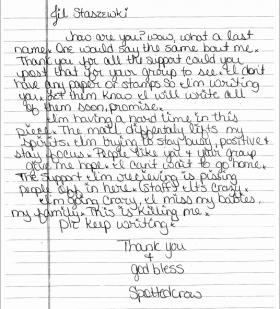 Jil Staszewski
how are you? wow, what a last
name. One would say the same bout me.
Thank you for all th support could you
post that for your group to see. I don't
have any paper or stamps so Im writing
you. let them know I will write all
of them soon, promise.
Im having a hard time in this
place. The mail differntaly lifts my
spirits. Im trying to stay busy, positive &
stay focus. People like you & your group
give me hope. I cant wait to go home.
The support Im recieving is pissing
people off in here. (staff) Its crazy.
Im going crazy, I miss my babies,
my family. This is killing me.
Plz keep writing.
Thank you
&
god bless
Spottedcrow